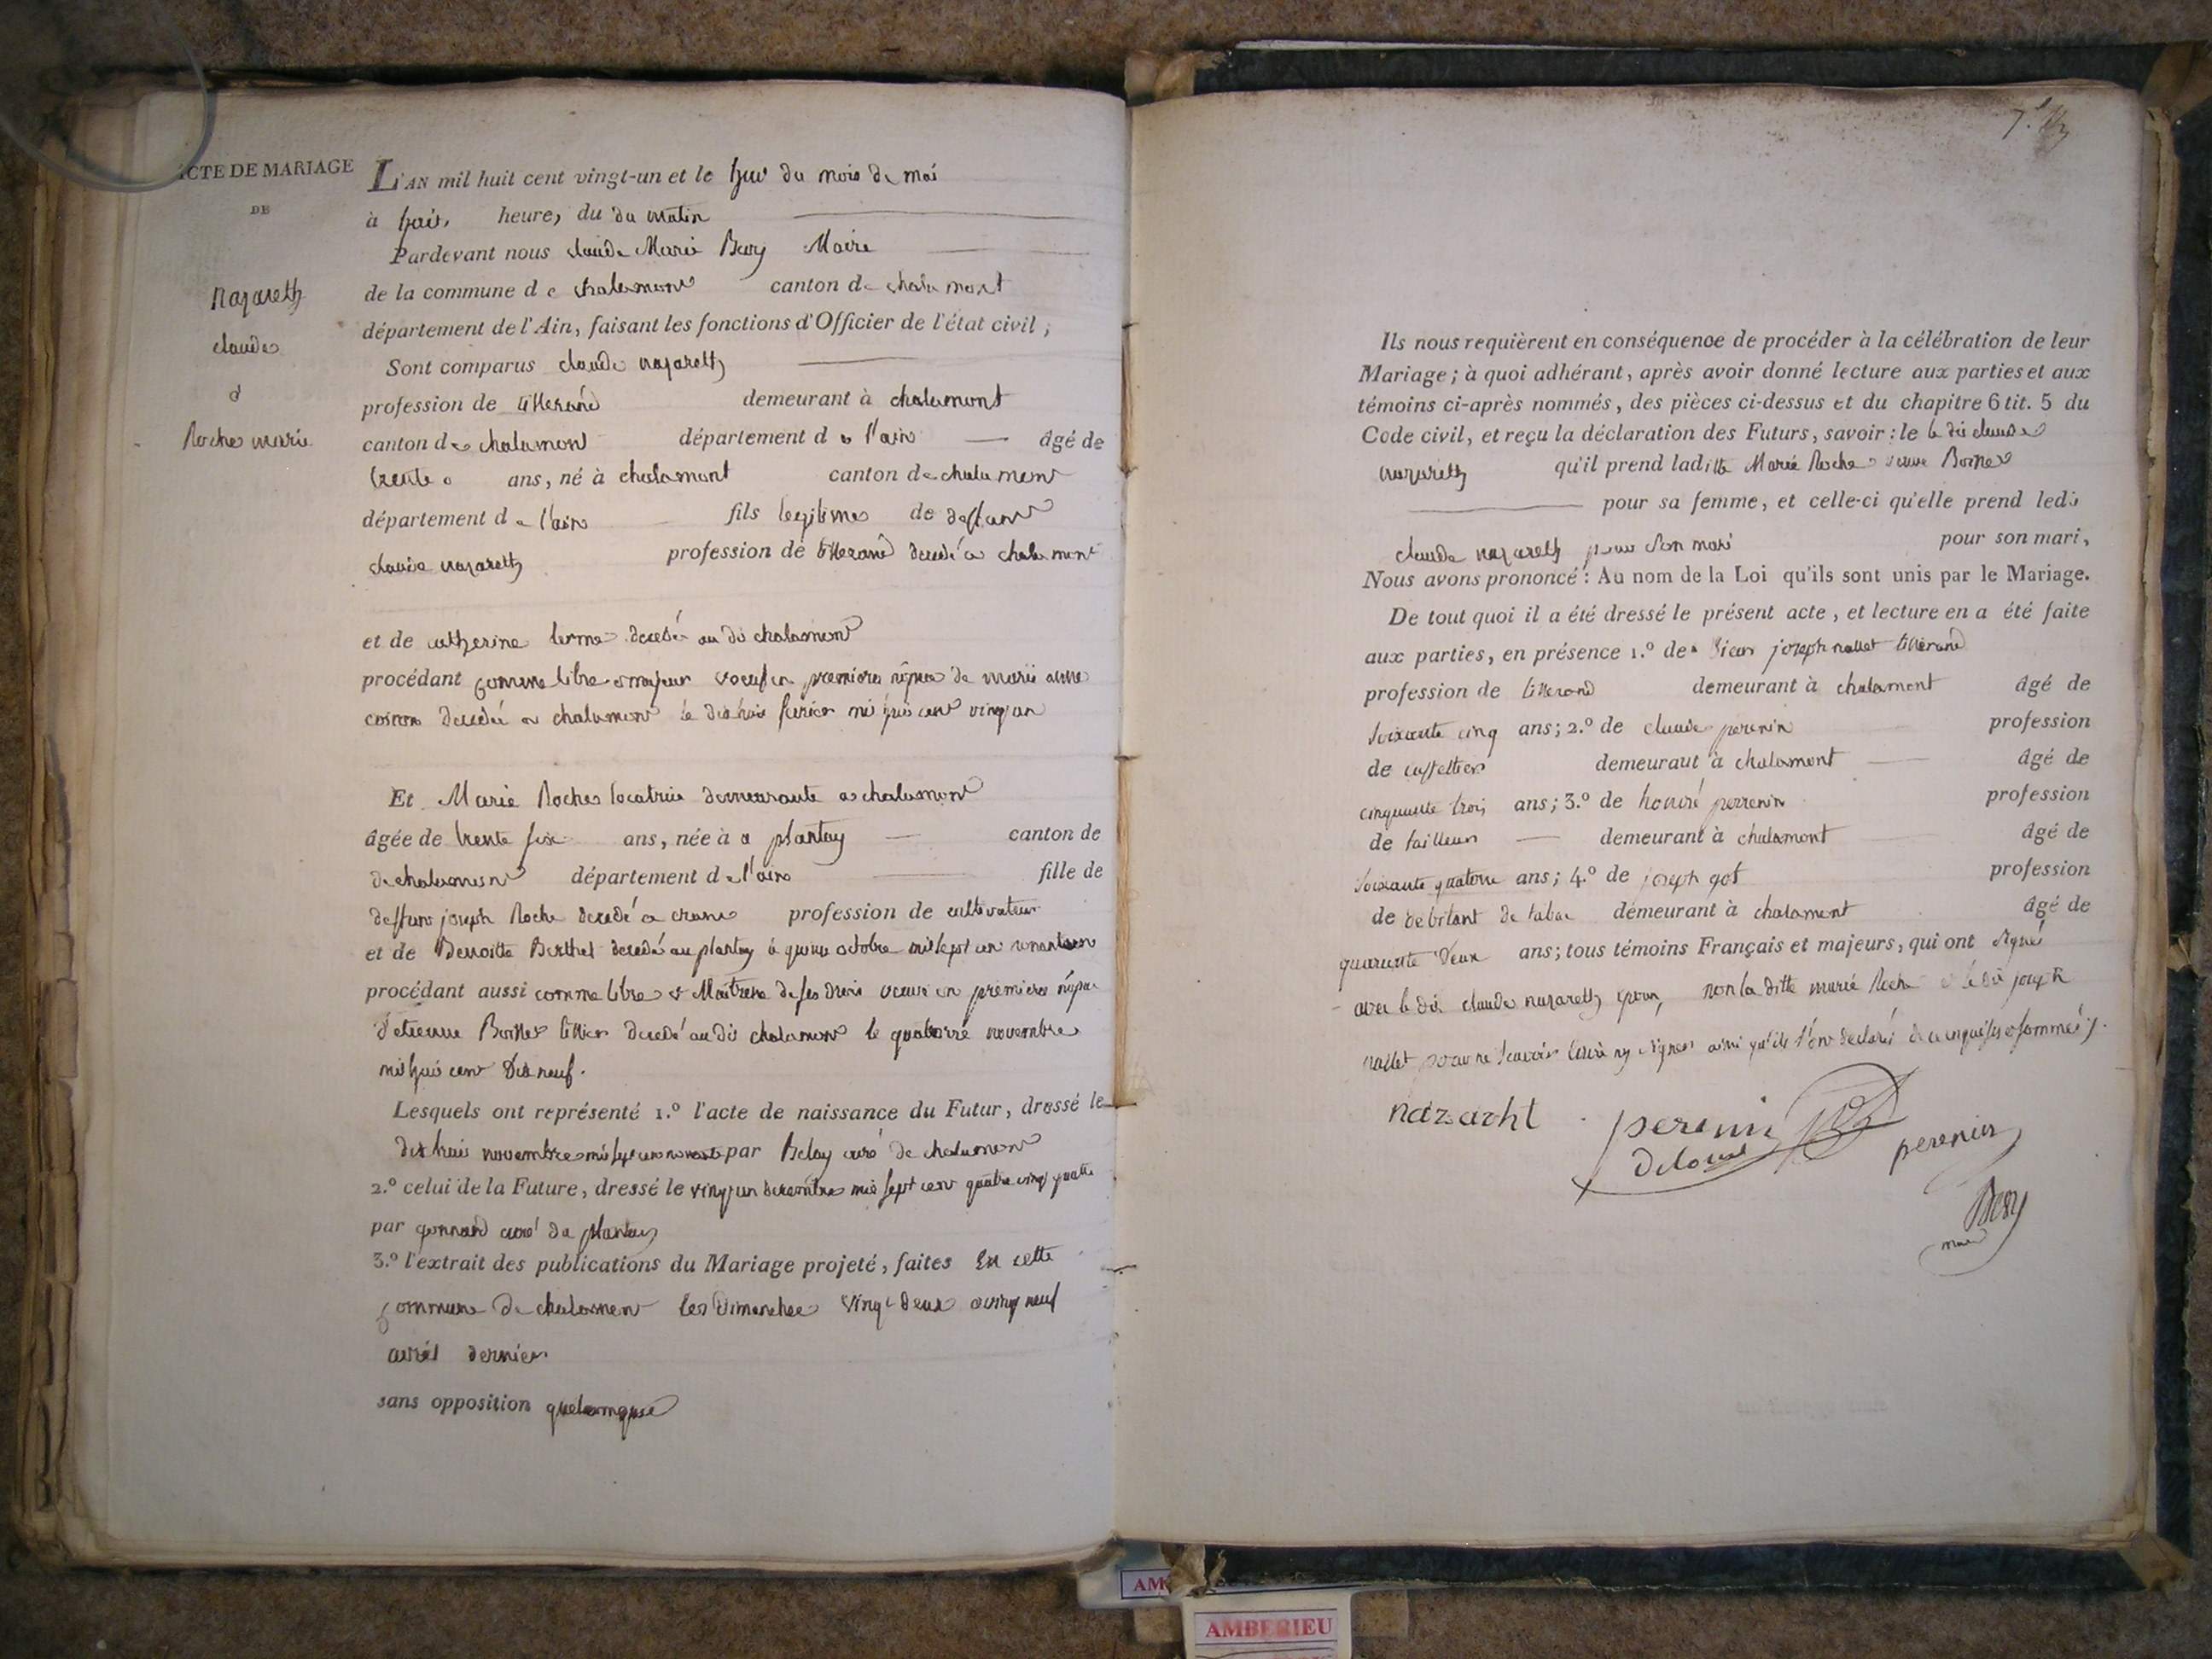 ACTE DE MARIAGE
DE
Nazareth
claude
&
Roche marie
L'AN mil huit cent vingt-un et le huit du mois de mai
à huit heures, du du matin
Pardevant nous claude Marie Bery Maire
de la commune de chalamont canton de chalamont
département de l'Ain, faisant les fonctions d'Officier de l'état civil ;
Sont comparus claude nazareth
profession de tisserand demeurant à chalamont
canton de chalamont département de l'ain âgé de
trente ans, né à chalamont canton de chalamont
département de l'ain fils legitime de deffunt
claude nazareth profession de tisserand decedé a chalamont
et de catherine decedé au dit chalamont
procédant comme libre et majeur veuf en premieres nôpces de marie anne
decedée a chalamont le dix huit fevrier mil huit cent vingt un
Et Marie Roche locatrice demeurante a chalamont
âgée de trente six ans, née à a plantay canton de
de chalamont département de l'ain fille de
deffunt joseph Roche decedé a crans profession de cultivateur
et de Benoitte Berthet decedé au plantay le quinze octobre mil sept cent
procédant aussi comme libre et Maitresse de ses droits veuve en premieres nôpces
d'etienne decedé au dit chalamont le quatorze novembre
mil huit cent Dix neuf.
Lesquels ont représenté 1.º l'acte de naissance du Futur, dressé le
dix huit novembre mil sept cent nonante par Belay curé de chalamont
2.º celui de la Future, dressé le vingt un decembre mil sept cent quatre vingt quatre
par gonnard curé du plantay
3.º l'extrait des publications du Mariage projeté, faites En cette
commune de chalamont les Dimanches vingt deux et vingt neuf
avril dernier
sans opposition quelconque
Ils nous requièrent en conséquence de procéder à la célébration de leur
Mariage ; à quoi adhérant, après avoir donné lecture aux parties et aux
témoins ci-après nommés, des pièces ci-dessus et du chapitre 6 tit. 5 du
Code civil, et reçu la déclaration des Futurs, savoir : le le dit claude
nazareth qu'il prend laditte Marie Roche veuve
pour sa femme, et celle-ci qu'elle prend ledit
claude nazareth pour son mari pour son mari,
Nous avons prononcé : Au nom de la Loi qu'ils sont unis par le Mariage.
De tout quoi il a été dressé le présent acte, et lecture en a été faite
aux parties, en présence 1.º de Sieur joseph nallet tisserand
profession de tisserand demeurant à chalamont âgé de
soixante cinq ans ; 2.º de claude perenin profession
de caffetier demeuraut à chalamont âgé de
cinquante trois ans ; 3.º de honoré perrenin profession
de tailleur demeurant à chalamont âgé de
soixante quatorze ans ; 4.º de joseph got profession
de debitant de tabac demeurant à chalamont âgé de
quarante Deux ans ; tous témoins Français et majeurs, qui ont signé
avec le dit claude nazareth epoux, non la ditte marie Roche et le dit joseph
nallet pour ne scavoir ecrire ny signer ainsi qu'ils l'ont declaré de ce enquis et sommés.
nazarht
perenin
perenin
Bery
maire
AMBERIEU